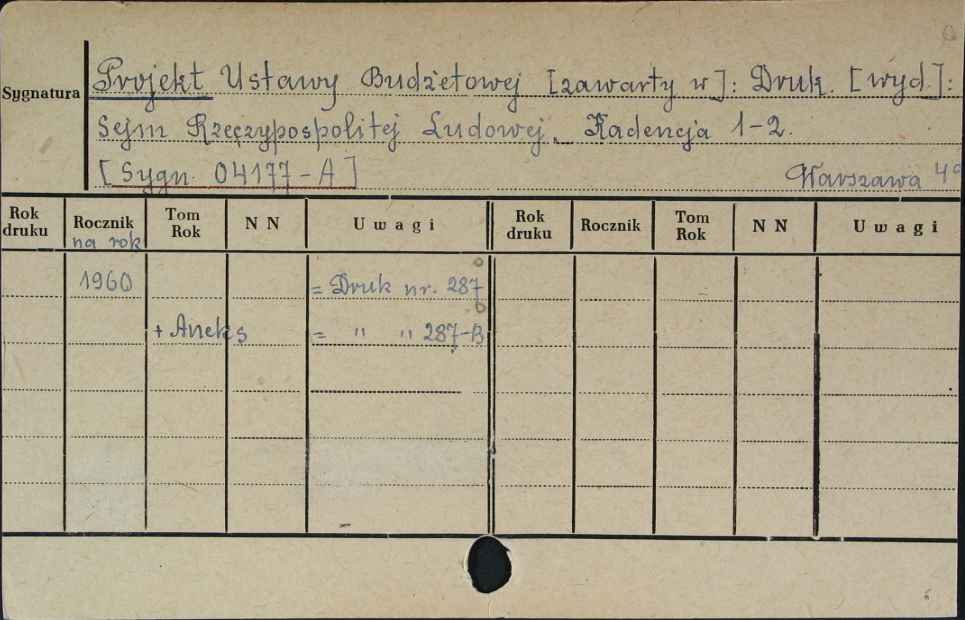 Sygnatura
Projekt Ustawy Budżetowej [zawarty w]: Druk. [wyd.]:
Sejm Rzeczypospolitej Ludowej. Kadencja 1-2.
[Sygn. 04177-A] Warszawa 4°
Rok druku Rocznik na rok Tom Rok N N Uwagi Rok druku Rocznik Tom Rok N N Uwagi
1960 = Druk nr. 287
+ Aneks = " " 287-B
6